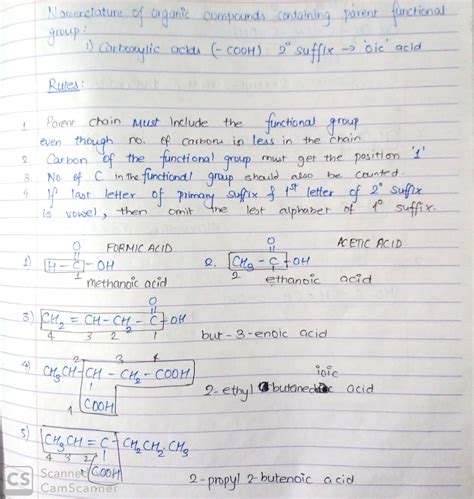 Nomenclature of organic compounds containing parent functional
group:
1) Carboxylic acids (-COOH) 2° suffix → 'oic' acid
Rules:
1 Parent chain must Include the functional group
even though no. of carbons is less in the chain
2 Carbon of the functional group must get the position '1'
3. No. of C in the functional group should also be counted.
4 If last letter of primary suffix & 1st letter of 2° suffix
is vowel, then omit the last alphabet of 1° suffix.
O FORMIC ACID O ACETIC ACID
1) H-C-OH 2. CH3-C-OH
1 2 1
methanoic acid ethanoic acid
O
3) CH2=CH-CH2-C-OH
4 3 2 1 but-3-enoic acid
2 3 4
4) CH3CH-CH-CH2-COOH
ioic
2-ethyl butane acid
1 COOH
5) CH3CH=C-CH2CH2CH3
4 3 2
COOH 2-propyl 2-butenoic acid
CS Scanned
CamScanner